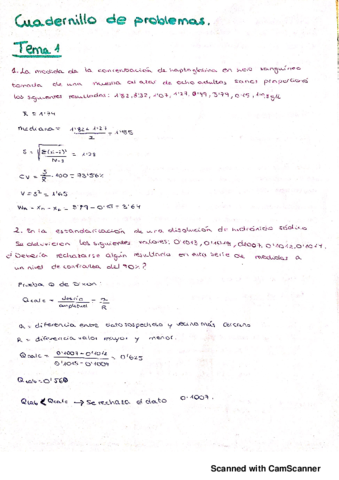 Cuadernillo de problemas.
Tema 1
1. La medida de la concentración de haptoglobina en suero sanguíneo
tomada de una muestra al azar de ocho adultos sanos proporcionó
los siguientes resultados: 1'82, 3'32, 1'07, 1'27, 0'49, 3'79, 0'15,
x̄ = 1'74
mediana = 1'82 + 1'27 / 2 = 1'55
S = √ Σ(xi-x̄)² / N-1 = 1'28
CV = S/x̄ · 100 = 73'56%
V = S² = 1'65
W = Xn - Xn = 3'79 - 0'15 = 3'64
2. En la estandarización de una disolución de hidróxido sódico
se obtuvieron los siguientes valores: 0'1013, 0'1007, 0'1012, 0'1014.
¿Debería rechazarse algún resultado en esta serie de medidas a
un nivel de confianza del 90%?
Prueba Q de Dixon:
Qcalc = desvío / amplitud = a / R
a = diferencia entre dato sospechoso y vecino más cercano
R = diferencia valor mayor y menor.
Qcalc = = 0'625
Qtab = 0'560
Qtab < Qcalc → Se rechaza el dato 0.1007.
Scanned with CamScanner